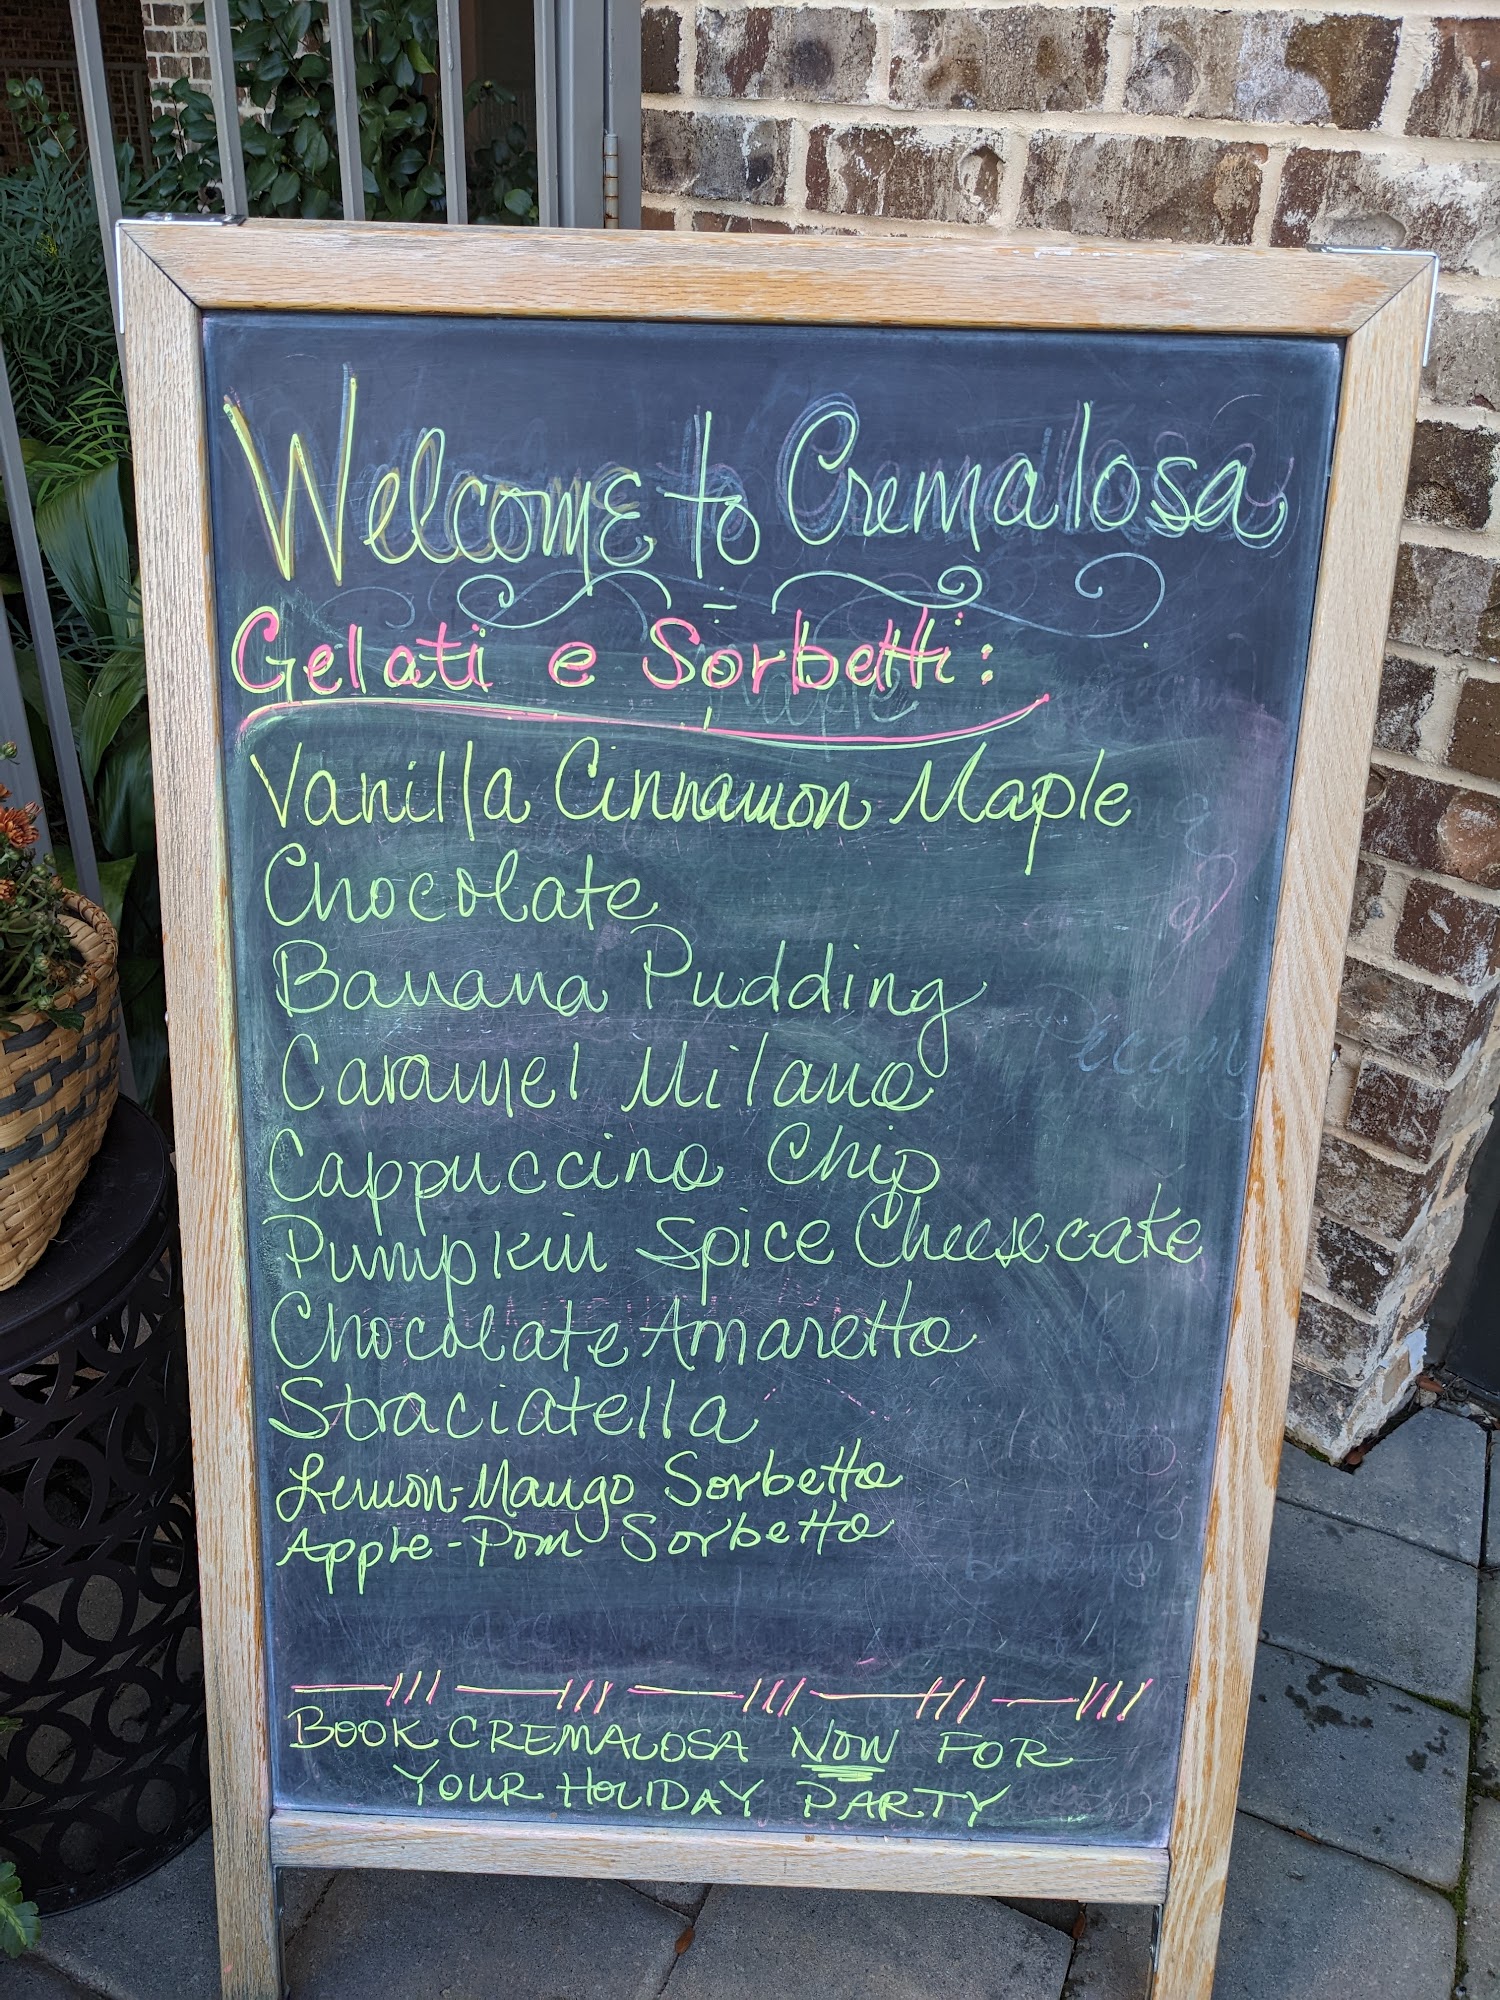 Welcome to Cremalosa
Gelati e Sorbetti:
Vanilla Cinnamon Maple
Chocolate
Banana Pudding
Caramel Milano
Cappuccino Chip
Pumpkin Spice Cheesecake
Chocolate Amaretto
Straciatella
Lemon-Mango Sorbetto
Apple-Pom Sorbetto
BOOK CREMALOSA NOW FOR
YOUR HOLIDAY PARTY